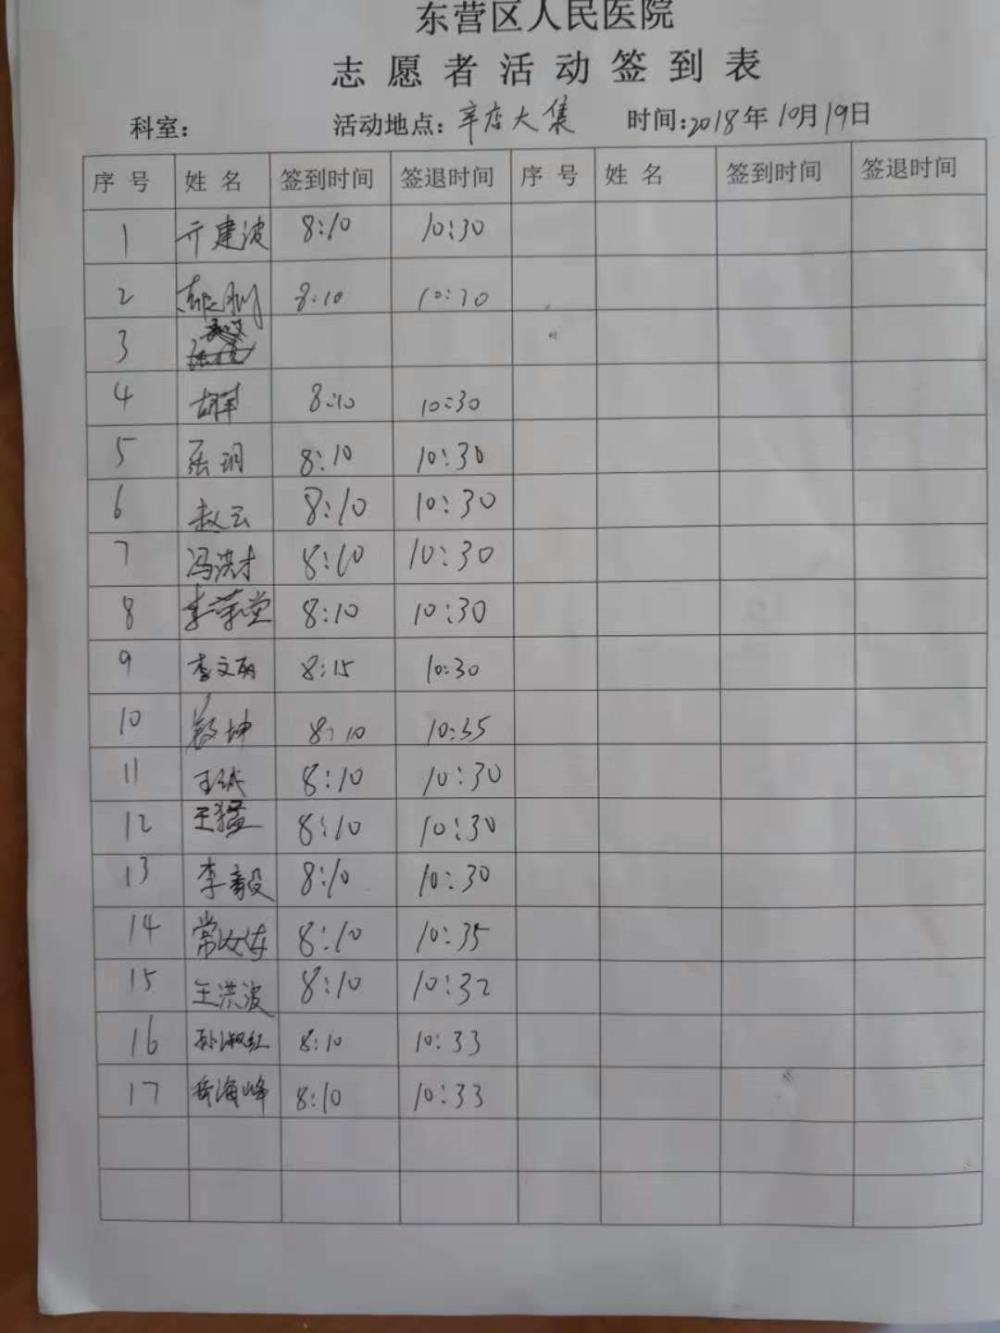 东营区人民医院
志愿者活动签到表
科室: 活动地点: 辛店大集 时间:2018年10月19日
序号 姓名 签到时间 签退时间 序号 姓名 签到时间 签退时间
1 亓建波 8:10 10:30
2 8:10 10:30
3
4 8:10 10:30
5 8:10 10:30
6 赵云 8:10 10:30
7 冯洪才 8:10 10:30
8 李荣堂 8:10 10:30
9 李文 8:15 10:30
10 坤 8:10 10:35
11 王 8:10 10:30
12 王猛 8:10 10:30
13 李毅 8:10 10:30
14 常 8:10 10:35
15 王洪波 8:10 10:32
16 孙淑红 8:10 10:33
17 岳海峰 8:10 10:33